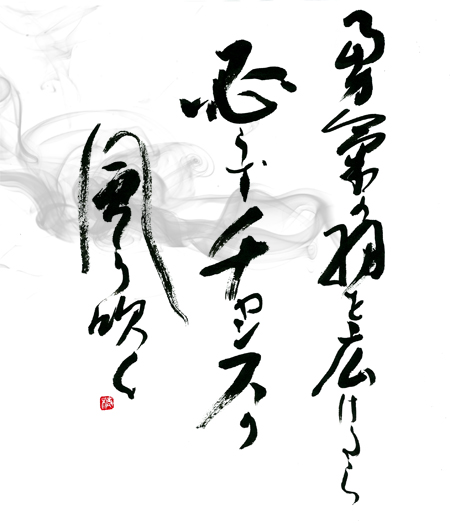 勇氣の羽を広げたら
必らずチャンスの
風が吹く